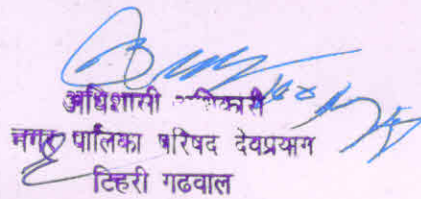 अधिशासी अधिकारी
नगर पालिका परिषद देवप्रयाग
टिहरी गढवाल